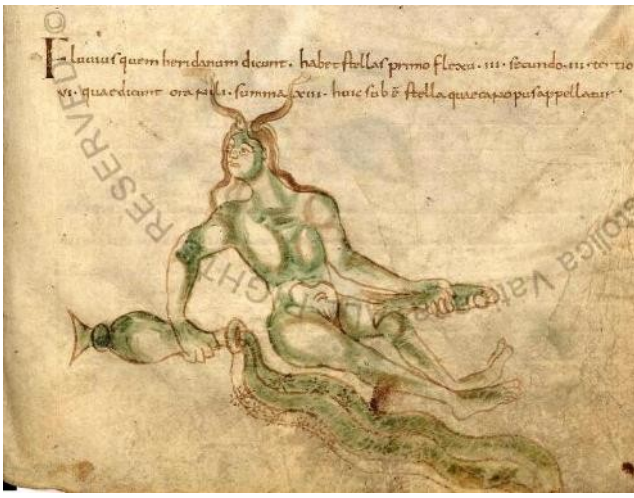 Fluvius quem heridanum dicunt · habet stellas primo flexu · iii · secundo · iii · tertio
vi · quae dicunt ora nili · summa xiii · huic sub ē stella quae canopus appellatur ·
© RESERVED
RIGHT
stolica Vati